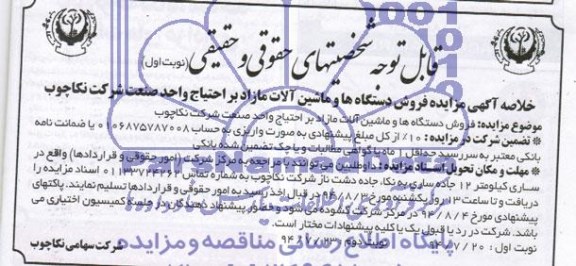 قابل توجه شخصیتهای حقوقی و حقیقی (نوبت اول)
خلاصه آگهی مزایده فروش دستگاه ها و ماشین آلات مازاد بر احتیاج واحد صنعت شرکت نکاچوب
موضوع مزایده: فروش دستگاه ها و ماشین آلات مازاد بر احتیاج واحد صنعت شرکت نکاچوب
* تضمین شرکت در مزایده: ۱۰٪ از کل مبلغ پیشنهادی به صورت واریزی به حساب ۰۱۰۶۸۷۵۷۸۷۰۰۸ یا ضمانت نامه
بانکی معتبر به سررسید حداقل ۱ ماه یا گواهی مطالبات و یا چک تضمین شده بانکی
* مهلت و مکان تحویل اسناد مزایده: داوطلبین می توانند با مراجعه به مرکز شرکت (امور حقوقی و قراردادها) واقع در
ساری کیلومتر ۱۲ جاده ساری به نکا، جاده دشت ناز شرکت نکاچوب به شماره تماس اسناد مزایده را
دریافت و تا ساعت ۱۳ روز یکشنبه مورخ ۹۴/۸/۳ در قبال اخذ رسید به امور حقوقی و قراردادها تسلیم نمایند. پاکتهای
پیشنهادی مورخ ۹۴/۸/۴ در مرکز شرکت گشوده می شود و حضور پیشنهاد دهندگان در جلسه کمیسیون اختیاری می
باشد. شرکت در رد یا قبول یک یا کلیه پیشنهادات مختار است.
نوبت اول: نوبت دوم:
شرکت سهامی نکاچوب
پایگاه اطلاع رسانی مناقصه و مزایده